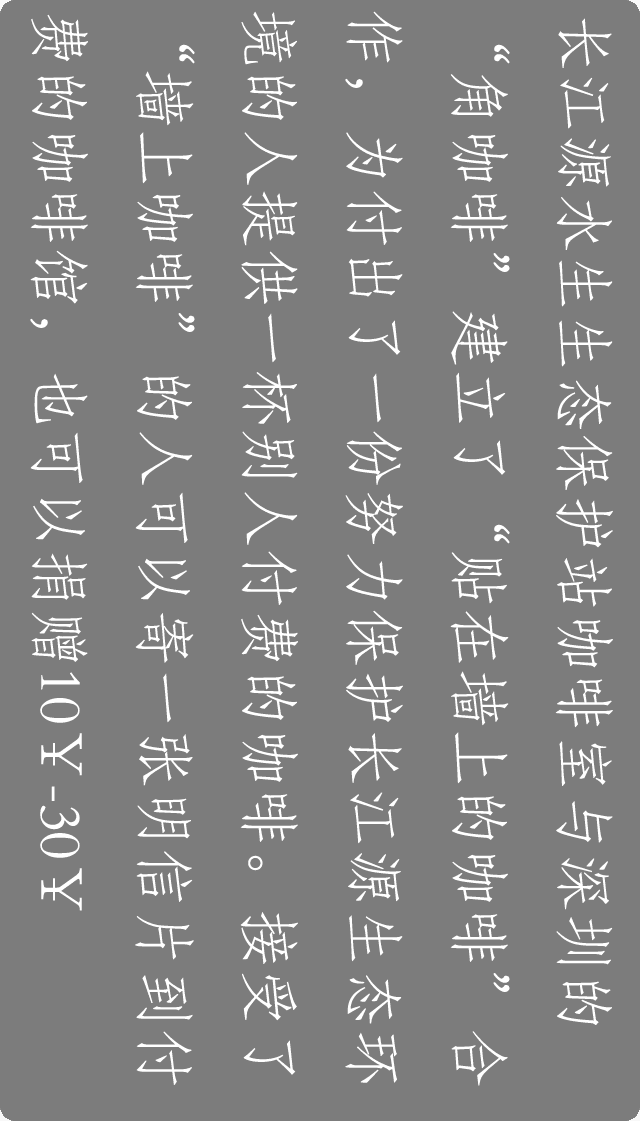 长江源水生生态保护站咖啡室与深圳的
“角咖啡”建立了“贴在墙上的咖啡”合
作，为付出了一份努力保护长江源生态环
境的人提供一杯别人付费的咖啡。接受了
“墙上咖啡”的人可以寄一张明信片到付
费的咖啡馆，也可以捐赠10￥-30￥